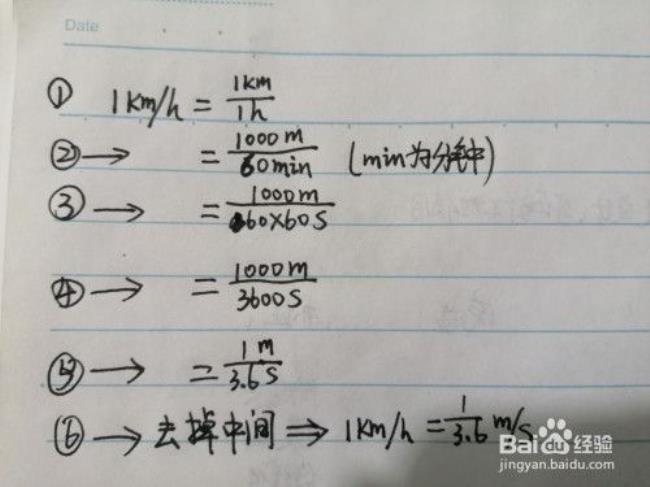 Date
① 1km/h = 1km/1h
② → = 1000m/60min (min为分钟)
③ → = 1000m/60×60s
④ → = 1000m/3600s
⑤ → = 1m/3.6s
⑥ → 去掉中间 ⇒ 1km/h = 1/3.6 m/s
Baidu经验
jingyan.baidu.com